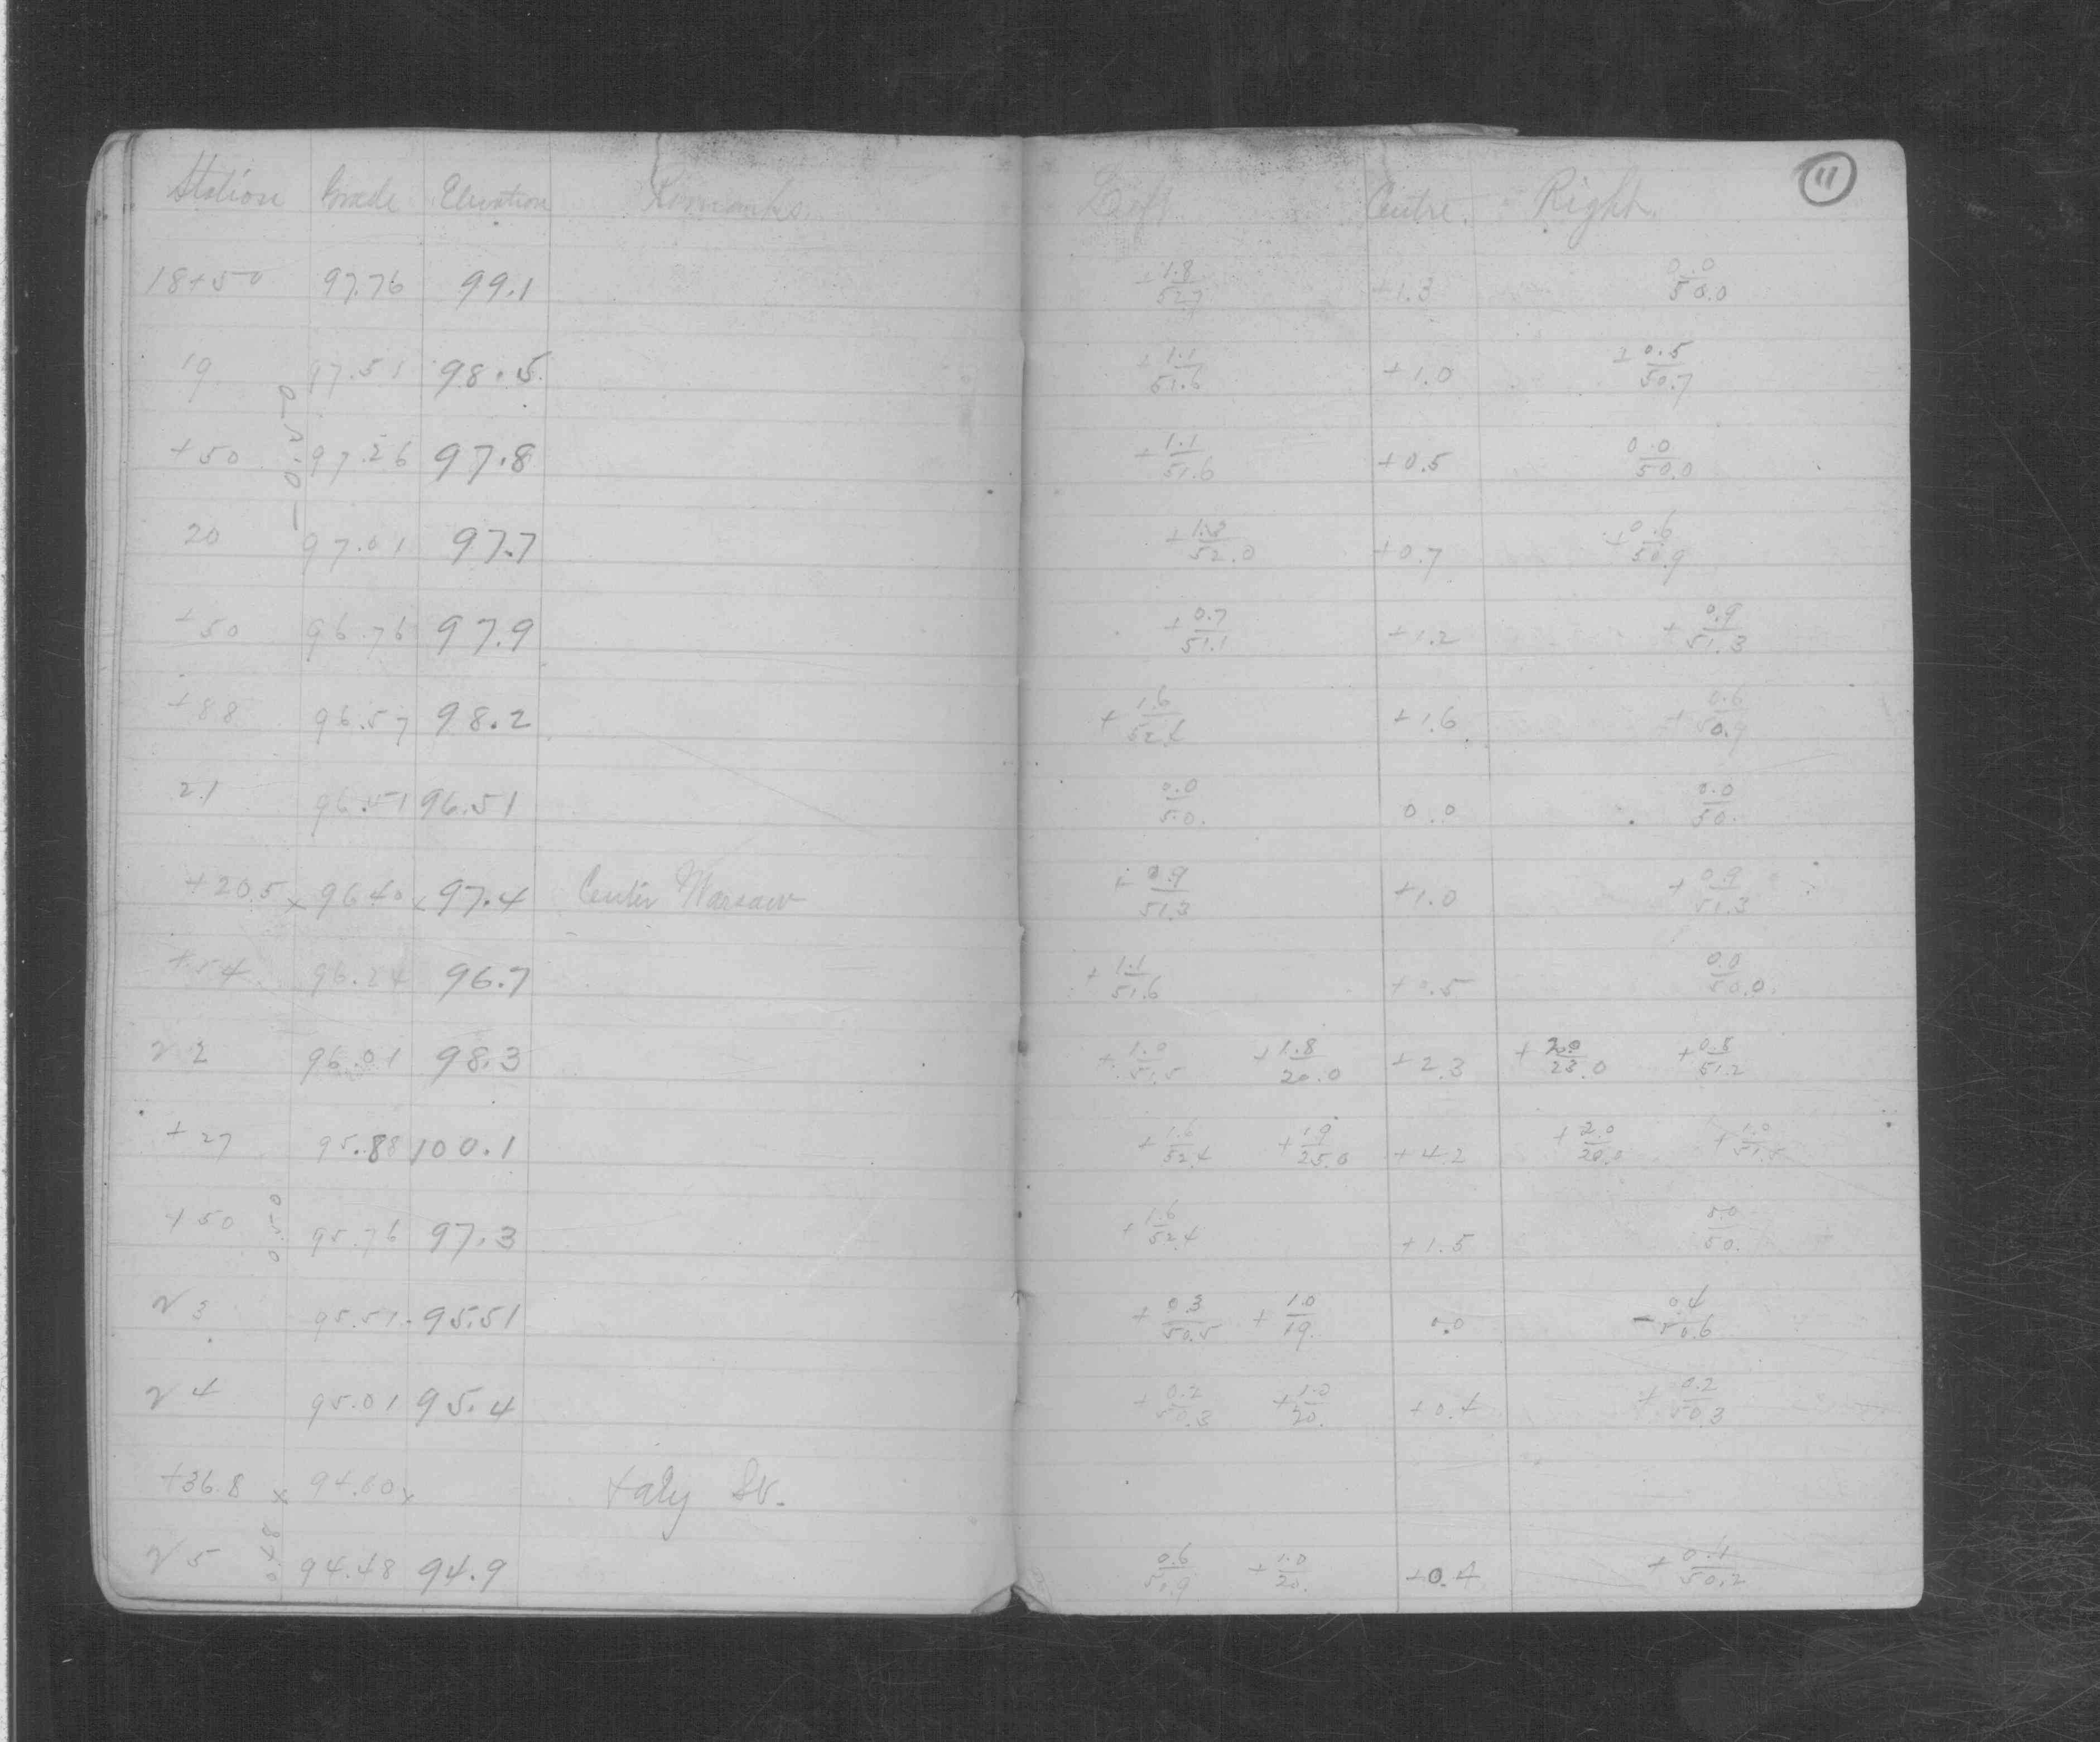 Station Grade Elevation Remarks Left Centre. Right. 11
18+50 97.76 99.1 +1.8/52.7 +1.3 0.0/50.0
19 97.51 98.5 +1.1/51.6 +1.0 +0.5/50.7
-0.50
+50 97.26 97.8 +1.1/51.6 +0.5 0.0/50.0
20 97.01 97.7 +1.3/52.0 +0.7 +0.6/50.9
+50 96.76 97.9 +0.7/51.1 +1.2 +0.9/51.3
+88 96.57 98.2 +1.6/52.4 +1.6 +0.6/50.9
21 96.51 96.51 0.0/50. 0.0 0.0/50.
+20.5 x 96.40 x 97.4 Center Warsaw +0.9/51.3 +1.0 +0.9/51.3
+54 96.24 96.7 +1.1/51.6 +0.5 0.0/50.0
22 96.01 98.3 +1.0/51.5 +1.8/20.0 +2.3 +2.0/23.0 +0.8/51.2
+27 95.88 100.1 +1.6/52.4 +1.9/25.0 +4.2 +2.0/20.0 +1.0/51.5
0.50
+50 95.76 97.3 +1.6/52.4 +1.5 50.
23 95.51 95.51 +0.3/50.5 +1.0/19. 0.0 -0.4/50.6
24 95.01 95.4 +0.2/50.3 +1.0/20. +0.4 +0.2/50.3
+36.8 x 94.80 x
0.48
25 94.48 94.9 0.6/50.9 +1.0/20. +0.4 +0.1/50.2